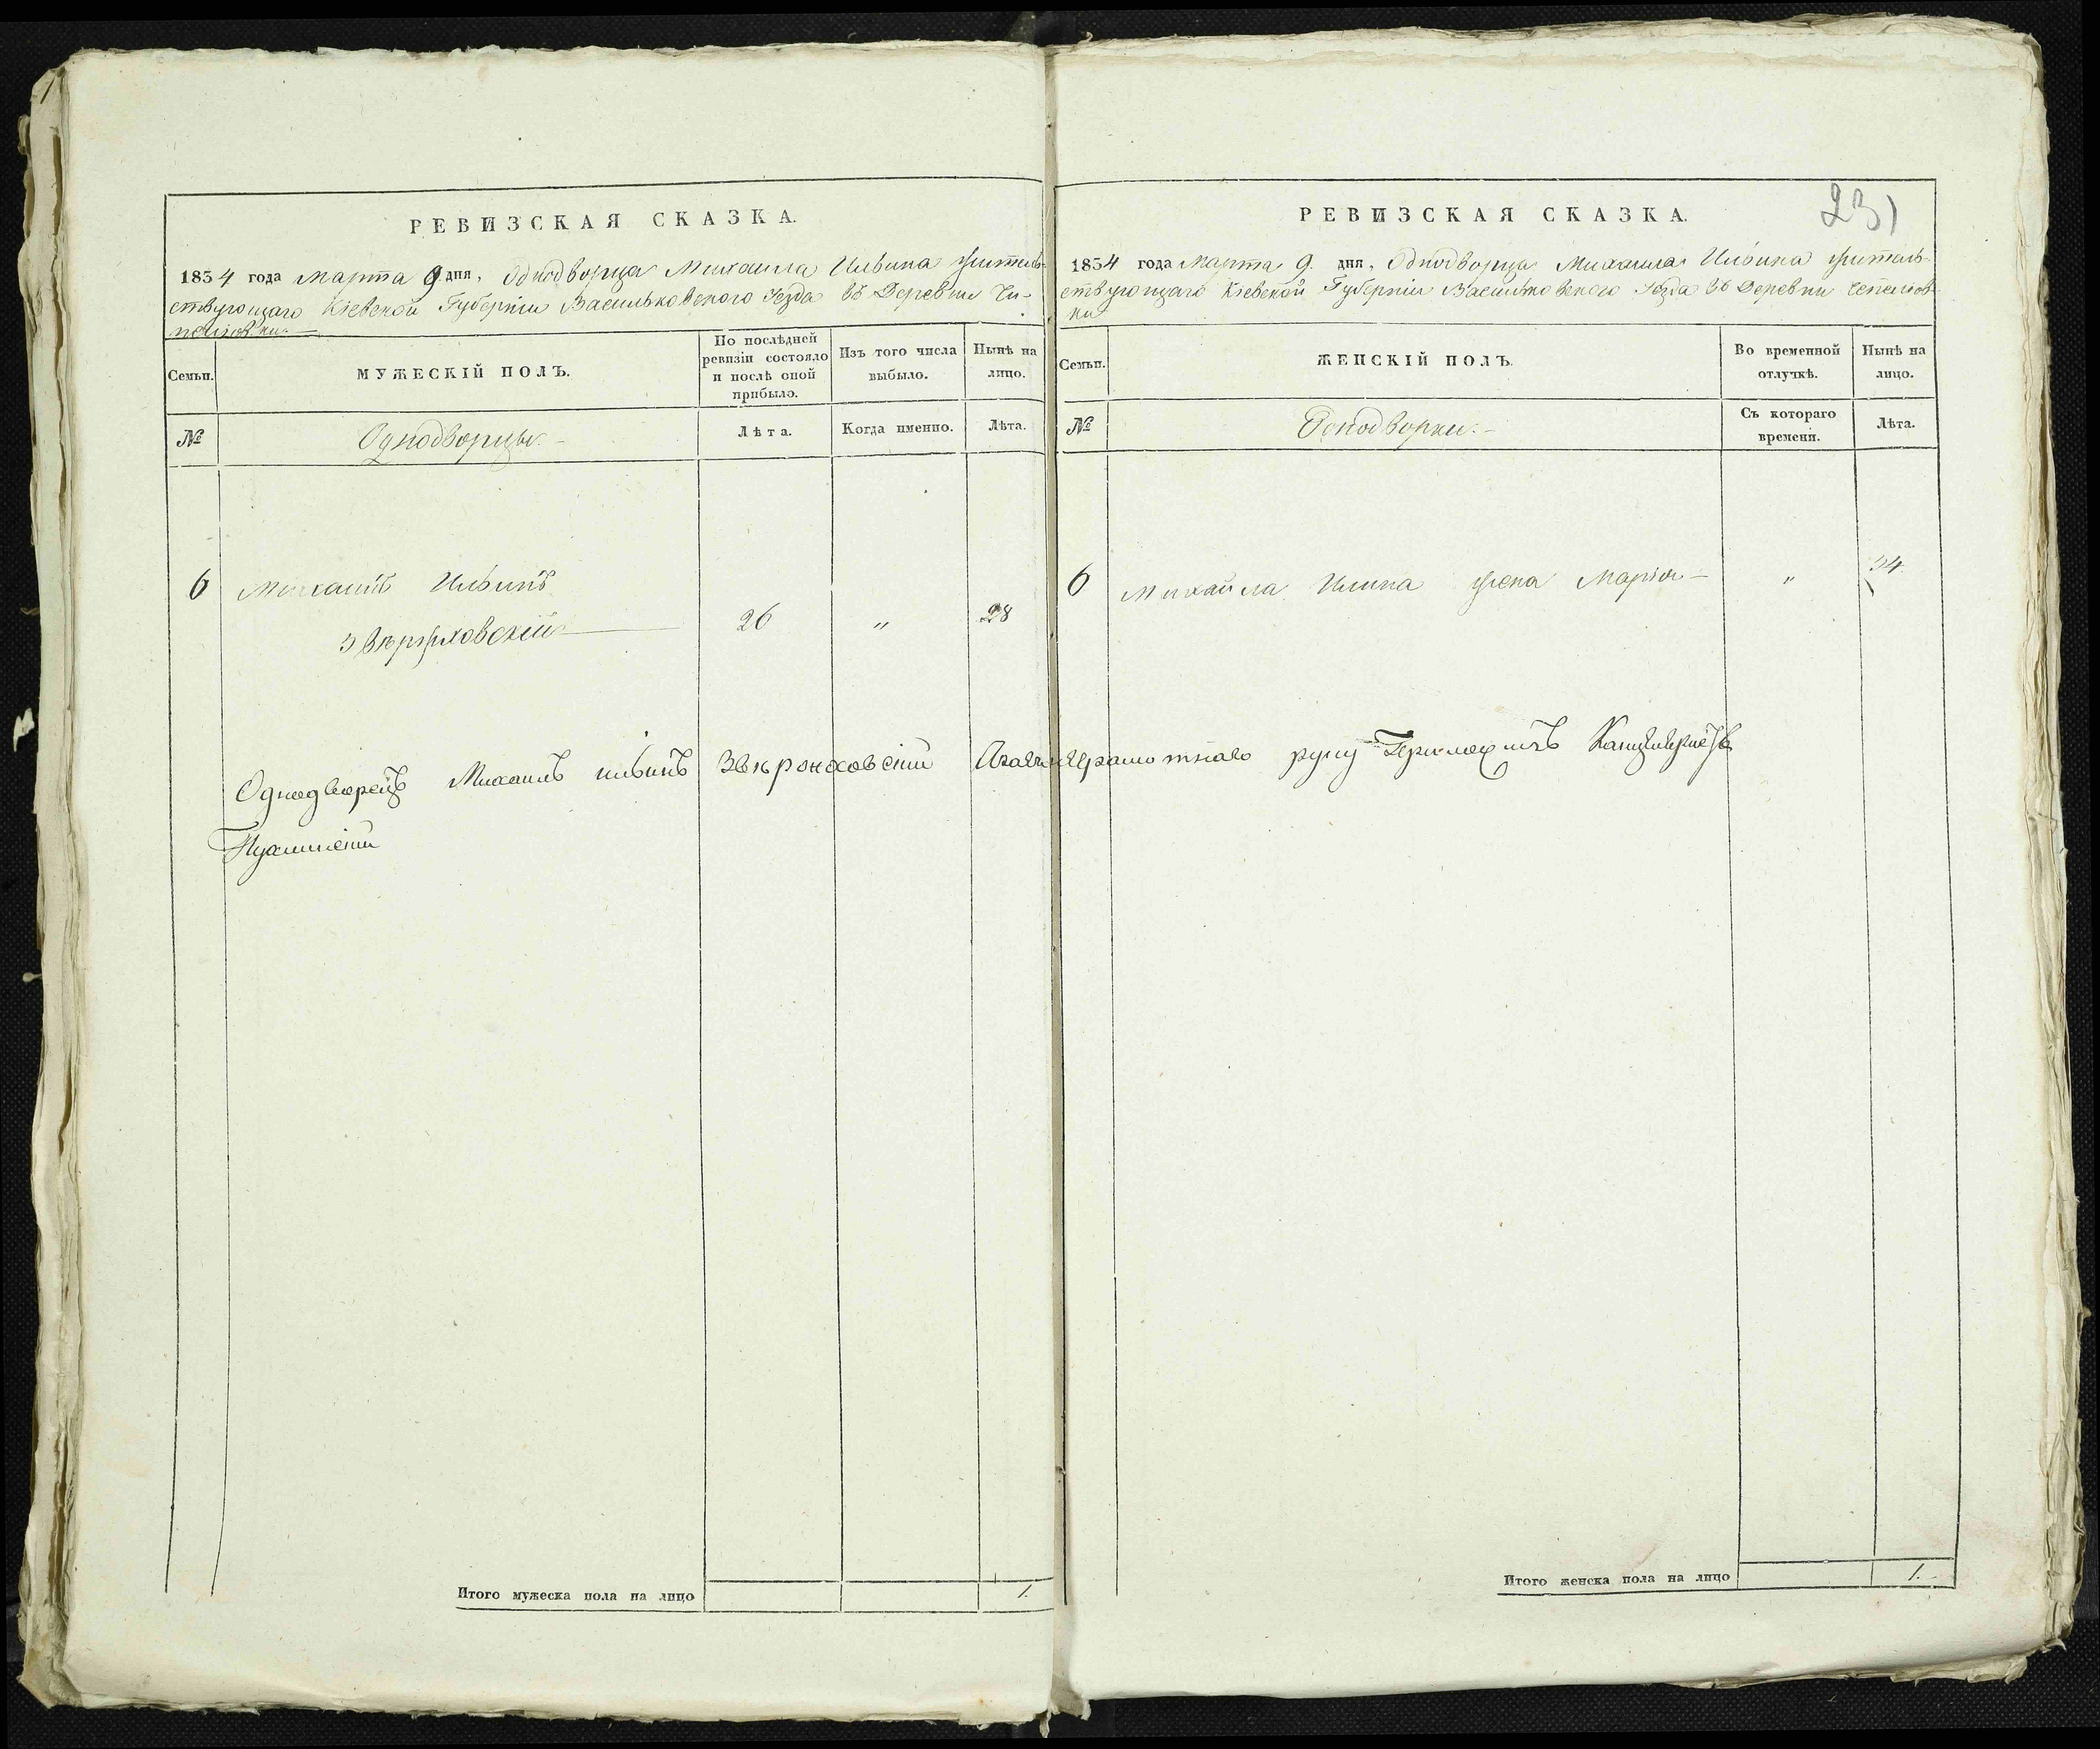 РЕВИЗСКАЯ СКАЗКА.
1834 года Марта 9 дня, Однодворца Михаила Ильина жительствующаго Кіевской Губерніи Васильковского Уезда въ Деревни Че-
пелиовки.
Семьи.
МУЖЕСКІЙ ПОЛЪ.
По послѣдней ревизіи состояло и послѣ оной прибыло.
Изъ того числа выбыло.
Нынѣ на лицо.
№
Однодворцы.
Лѣта.
Когда именно.
Лѣта.
6 Михаилъ Ильинъ
26 " 28
Однодворецъ Михаилъ ильинъ
Итого мужеска пола на лицо 1.
23
РЕВИЗСКАЯ СКАЗКА.
1834 года Марта 9. дня, Однодворца Михаила Ильина житель-
ствующаго Кіевской Губерніи Васильковского Уезда въ Деревни Чепелиов
ки
Семьи.
ЖЕНСКІЙ ПОЛЪ.
Во временной отлучкѣ.
Нынѣ на лицо.
№
Однодворки.
Съ котораго времени.
Лѣта.
6 Михайла Илина жена Марія "
Итого женска пола на лицо 1.